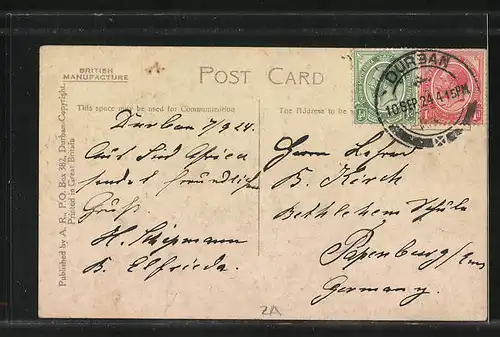 BRITISH
MANUFACTURE
POST CARD
This space may be used for Communication
The Address to be
Durban 7/9.24.
Aus Süd Afrika
sendet freundlichen
Gruß
H.
B. Elfrieda.
Herrn
B. Kirch
Bethlehem Schule
Papenburg/Ems
Germany.
DURBAN
10 SEP 24 4 15PM
Published by A. R., P.O. Box 382, Durban Copyright.
Printed in Great Britain
2A